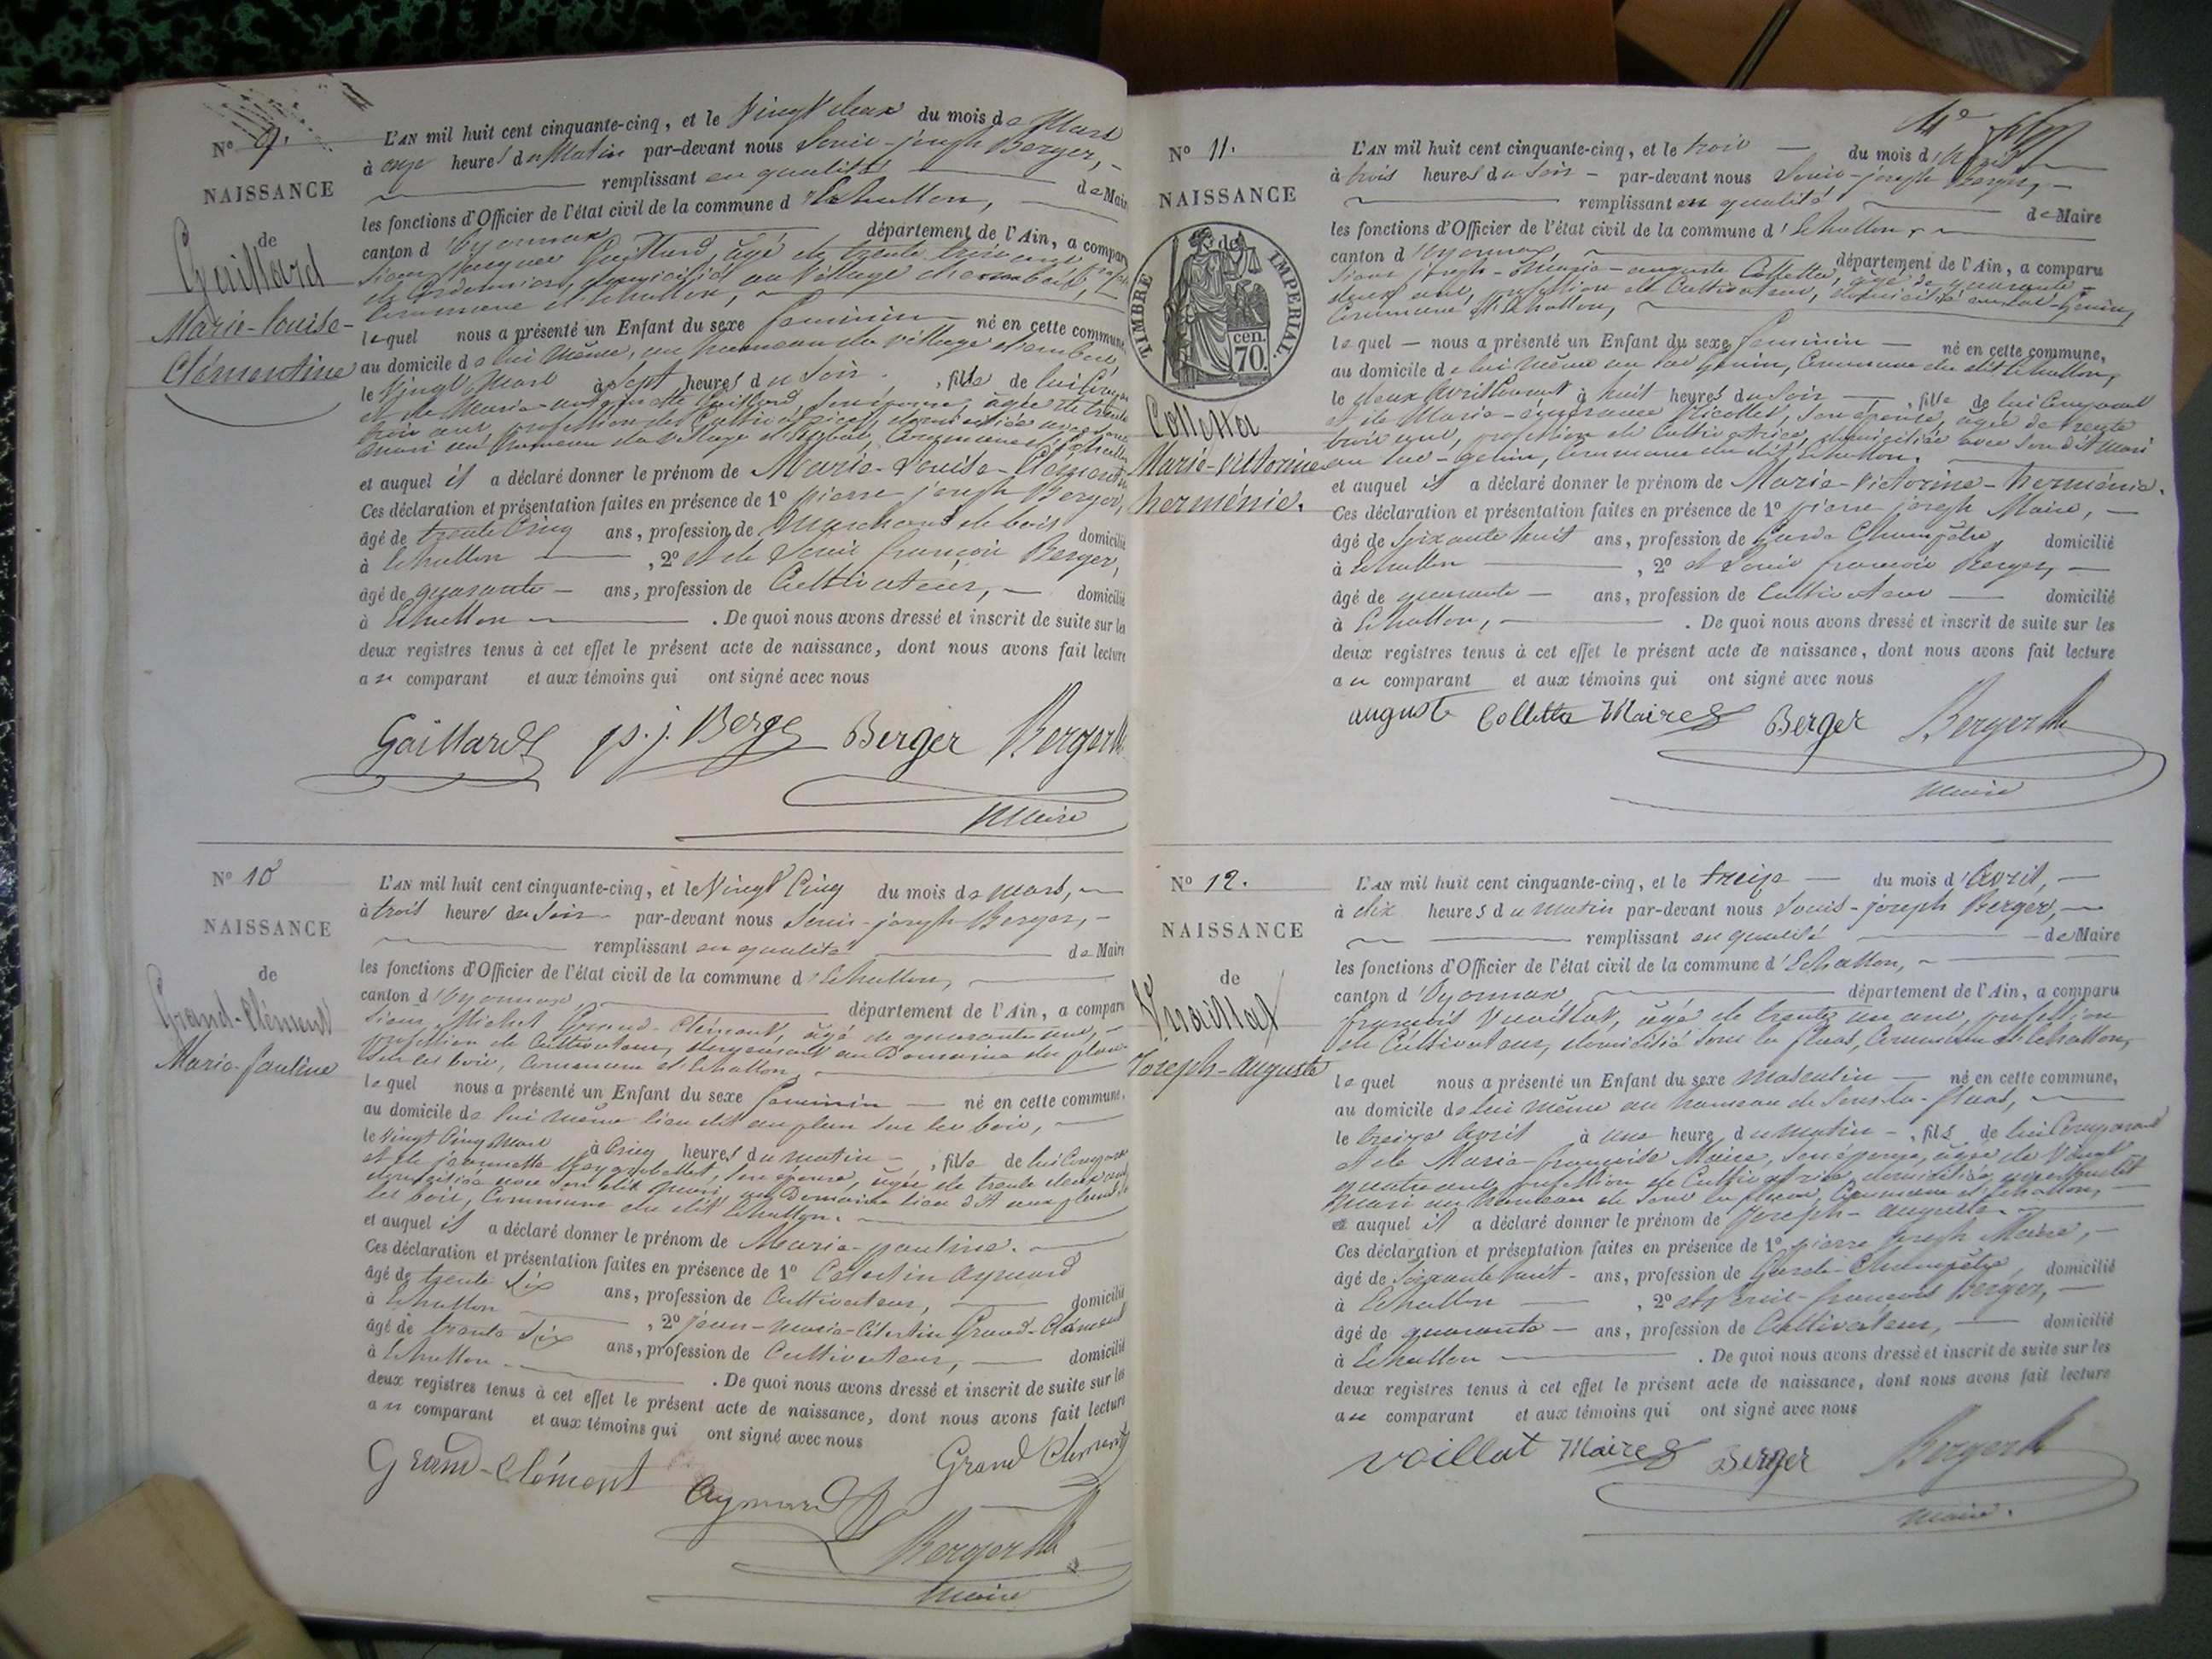 N° 9.
NAISSANCE
de
Gaillard
Marie-Louise-
Clémentine
L'AN mil huit cent cinquante-cinq, et le Vingt deux du mois de Mars
à onze heures du Matin par-devant nous Louis-joseph Berger,
remplissant en qualité de Maire
les fonctions d'Officier de l'état civil de la commune d'Echallon,
canton d'Oyonnax département de l'Ain, a comparu
Sieur Jacques Gaillard, âgé de trente trois ans, profession
de Cordonnier, domicilié au Village
Commune d'Echallon,
lequel nous a présenté un Enfant du sexe feminin né en cette commune,
au domicile de lui même, au hameau du village
le Vingt Mars à sept heures du Soir, fille de lui Comparant
et de Marie Gaillard Son épouse, âgée de trente
trois ans, profession de Cultivatrice, domiciliée avec son
mari au hameau du Village Commune d'Echallon
et auquel il a déclaré donner le prénom de Marie-Louise-Clémentine
Ces déclaration et présentation faites en présence de 1° pierre joseph Berger,
âgé de trente Cinq ans, profession de Marchand de bois domicilié
à Echallon, 2° et de Louis françois Berger,
âgé de quarante ans, profession de Cultivateur, domicilié
à Echallon. De quoi nous avons dressé et inscrit de suite sur les
deux registres tenus à cet effet le présent acte de naissance, dont nous avons fait lecture
au comparant et aux témoins qui ont signé avec nous
Gaillard p. j. Berger Berger Berger
Maire
N° 10
NAISSANCE
de
Grand-Clément
Marie-pauline
L'AN mil huit cent cinquante-cinq, et le Vingt Cinq du mois de Mars,
à trois heures du Soir par-devant nous Louis-joseph Berger,
remplissant en qualité de Maire
les fonctions d'Officier de l'état civil de la commune d'Echallon,
canton d'Oyonnax, département de l'Ain, a comparu
Sieur Michel Grand-Clément, âgé de quarante ans,
profession de Cultivateur, demeurant au Domaine du plan
sur les bois, Commune d'Echallon,
lequel nous a présenté un Enfant du sexe feminin né en cette commune,
au domicile de lui même lieu dit au plan sur les bois,
le Vingt Cinq Mars à Cinq heures du matin, fille de lui Comparant
et de jeannette Son épouse, âgée de trente deux ans
domiciliée avec Son dit Mari, au Domaine lieu dit
les bois, Commune du dit Echallon.
et auquel il a déclaré donner le prénom de Marie-pauline.
Ces déclaration et présentation faites en présence de 1° Célestin Aymard
âgé de trente Six ans, profession de Cultivateur, domicilié
à Echallon, 2° jean-marie-Célestin Grand-Clément
âgé de trente Six ans, profession de Cultivateur, domicilié
à Echallon. De quoi nous avons dressé et inscrit de suite sur les
deux registres tenus à cet effet le présent acte de naissance, dont nous avons fait lecture
au comparant et aux témoins qui ont signé avec nous
Grand-Clément Aymard Grand Clément
Berger
Maire
N° 11.
NAISSANCE
de
TIMBRE IMPERIAL.
70. cen.
Colletta
Marie-Victorine
herménie.
L'AN mil huit cent cinquante-cinq, et le trois du mois d'Avril
à trois heures du Soir par-devant nous Louis-joseph Berger,
remplissant en qualité de Maire
les fonctions d'Officier de l'état civil de la commune d'Echallon,
canton d'Oyonnax, département de l'Ain, a comparu
Sieur joseph auguste Colletta, âgé de quarante
deux ans, profession de Cultivateur, domicilié au Lac-Genin,
Commune d'Echallon,
lequel nous a présenté un Enfant du sexe feminin né en cette commune,
au domicile de lui même au Lac Genin, Commune du dit Echallon,
le deux Avril Courant à huit heures du Soir, fille de lui Comparant
et de Marie Nicollet, Son épouse, âgée de trente
trois ans, profession de Cultivatrice, domiciliée avec Son dit Mari
au Lac-Genin, Commune du dit Echallon.
et auquel il a déclaré donner le prénom de Marie-Victorine-herménie.
Ces déclaration et présentation faites en présence de 1° pierre joseph Maire,
âgé de Soixante huit ans, profession de Garde Champêtre, domicilié
à Echallon, 2° et Louis françois Berger,
âgé de quarante ans, profession de Cultivateur domicilié
à Echallon,. De quoi nous avons dressé et inscrit de suite sur les
deux registres tenus à cet effet le présent acte de naissance, dont nous avons fait lecture
au comparant et aux témoins qui ont signé avec nous
auguste Colletta Maire Berger Berger
Maire
N° 12.
NAISSANCE
de
Vuaillat
Joseph-auguste
L'AN mil huit cent cinquante-cinq, et le treize du mois d'Avril,
à dix heures du Matin par-devant nous Louis-joseph Berger,
remplissant en qualité de Maire
les fonctions d'Officier de l'état civil de la commune d'Echallon,
canton d'Oyonnax, département de l'Ain, a comparu
françois Vuaillat, âgé de trente un ans, profession
de Cultivateur, domicilié Sous la Commune d'Echallon,
lequel nous a présenté un Enfant du sexe masculin né en cette commune,
au domicile de lui même au hameau de Sous-la-
le treize Avril à une heure du matin, fils de lui Comparant
et de Marie-françoise Maire, Son épouse, âgée de Vingt
quatre ans, profession de Cultivatrice, domiciliée avec Son dit
Mari au hameau de Sous la Commune d'Echallon,
et auquel il a déclaré donner le prénom de Joseph-auguste.
Ces déclaration et présentation faites en présence de 1° pierre joseph Maire,
âgé de Soixante huit ans, profession de Garde-Champêtre, domicilié
à Echallon, 2° et Louis-françois Berger,
âgé de quarante ans, profession de Cultivateur, domicilié
à Echallon. De quoi nous avons dressé et inscrit de suite sur les
deux registres tenus à cet effet le présent acte de naissance, dont nous avons fait lecture
au comparant et aux témoins qui ont signé avec nous
Voillat Maire Berger Berger
Maire.